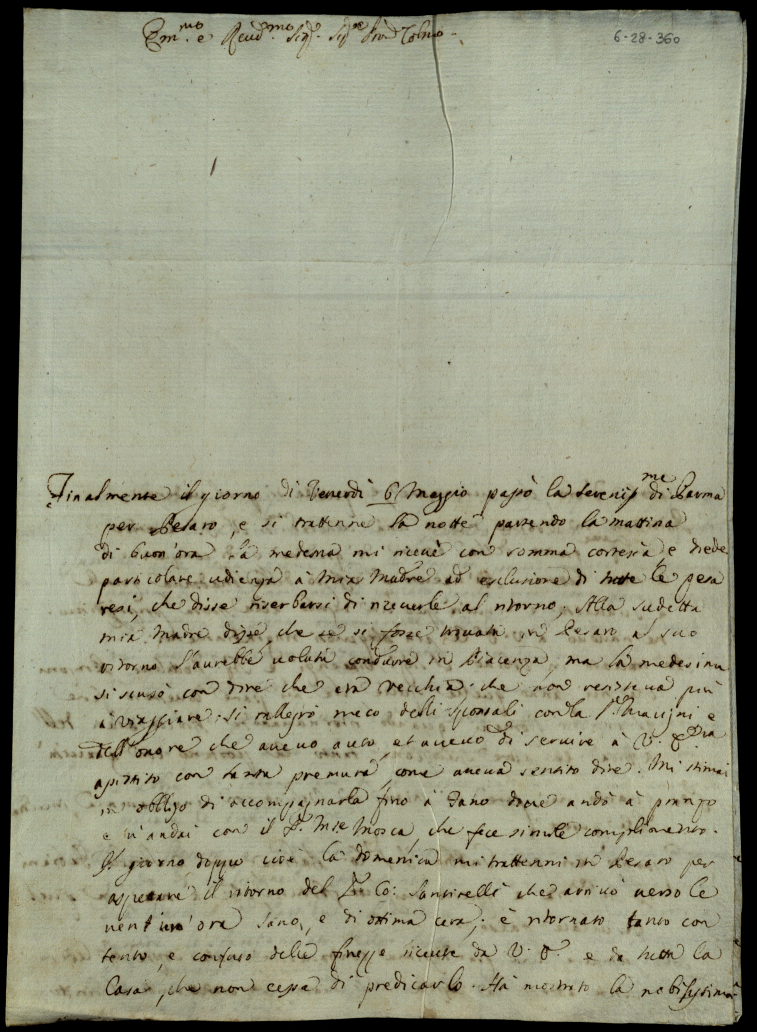 Em.mo e Reud.mo Sig.r Sig.re Pron Colmo
6-28-360
Finalmente il giorno di Venerdì 6 Maggio passò la Sereniss.me di Parma
per Pesaro, e si trattenne la notte partendo la mattina
di buon'ora la medema mi riceuè con somma cortesia e diede
particolare udienza à Mia Madre ad esclusione di tutte le pesa
resi, che disse riserbarsi di riceuerle al ritorno; Alla sudetta
mia Madre disse, che se si fosse trouata in Pesaro al suo
ritorno l'aurebbe uoluta condurre in Piacenza, ma la medesima
si scusò con dire che era vecchia che non resisteua più
à viaggiare. Si rallegrò meco delli sponsali con la Sra Mazzini e
dell'onore che aueuo auto, et aueuo di seruire à V. Em.za
con tanta premura, come aueua sentito dire. Mi stimai
in obligo di accompagnarla fino à Fano doue andò à pranzo
e u'andai con il S.r Mse Mosca, che fece simile complimento.
Il giorno doppo cioè la domenica mi trattenni in Pesaro per
aspettare il ritorno del Sr Co: Santinelli che arriuò uerso le
uent'un'ora sano, e di ottima cera; è ritornato tanto con
tento, e confuso delle finezze riceute da V. E. e da tutta la
Casa, che non cessa di predicarlo. Hà mostrato la nobilissima